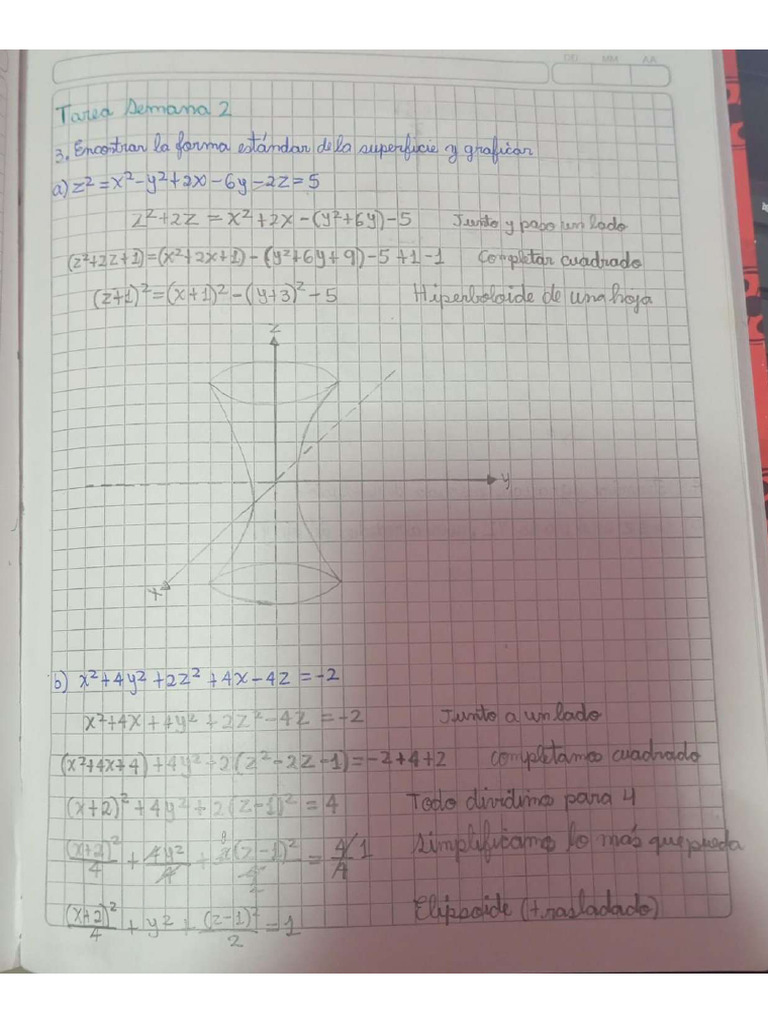 DD MM AA
Tarea Semana 2
3. Encontrar la forma estándar de la superficie y graficar
a) z²=x²-y²+2x-6y-2z=5
z²+2z = x²+2x-(y²+6y)-5 Junto y paso un lado
(z²+2z+1)=(x²+2x+1)-(y²+6y+9)-5+1-1 Completar cuadrado
(z+1)²=(x+1)²-(y+3)²-5 Hiperboloide de una hoja
z
y
x
b) x²+4y²+2z²+4x-4z=-2
x²+4x+4y²+2z²-4z=-2 Junto a un lado
(x²+4x+4)+4y²+2(z²-2z-1)=-2+4+2 completamos cuadrado
(x+2)²+4y²+2(z-1)²=4 Todo dividimo para 4
(x+2)²/4 + 4y²/4 + 2(z-1)²/4 = 4/4 1 Simplificamo lo más que pueda
(x+2)²/4 + y² + (z-1)²/2 = 1 Elipsoide (trasladado)